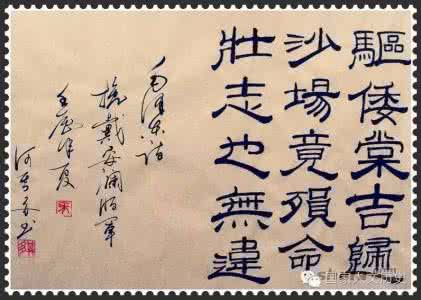 驅倭棠吉歸
沙場竟殞命
壯志也無違
毛澤东诗
挽戴安瀾将軍
壬辰年夏
国家人文历史